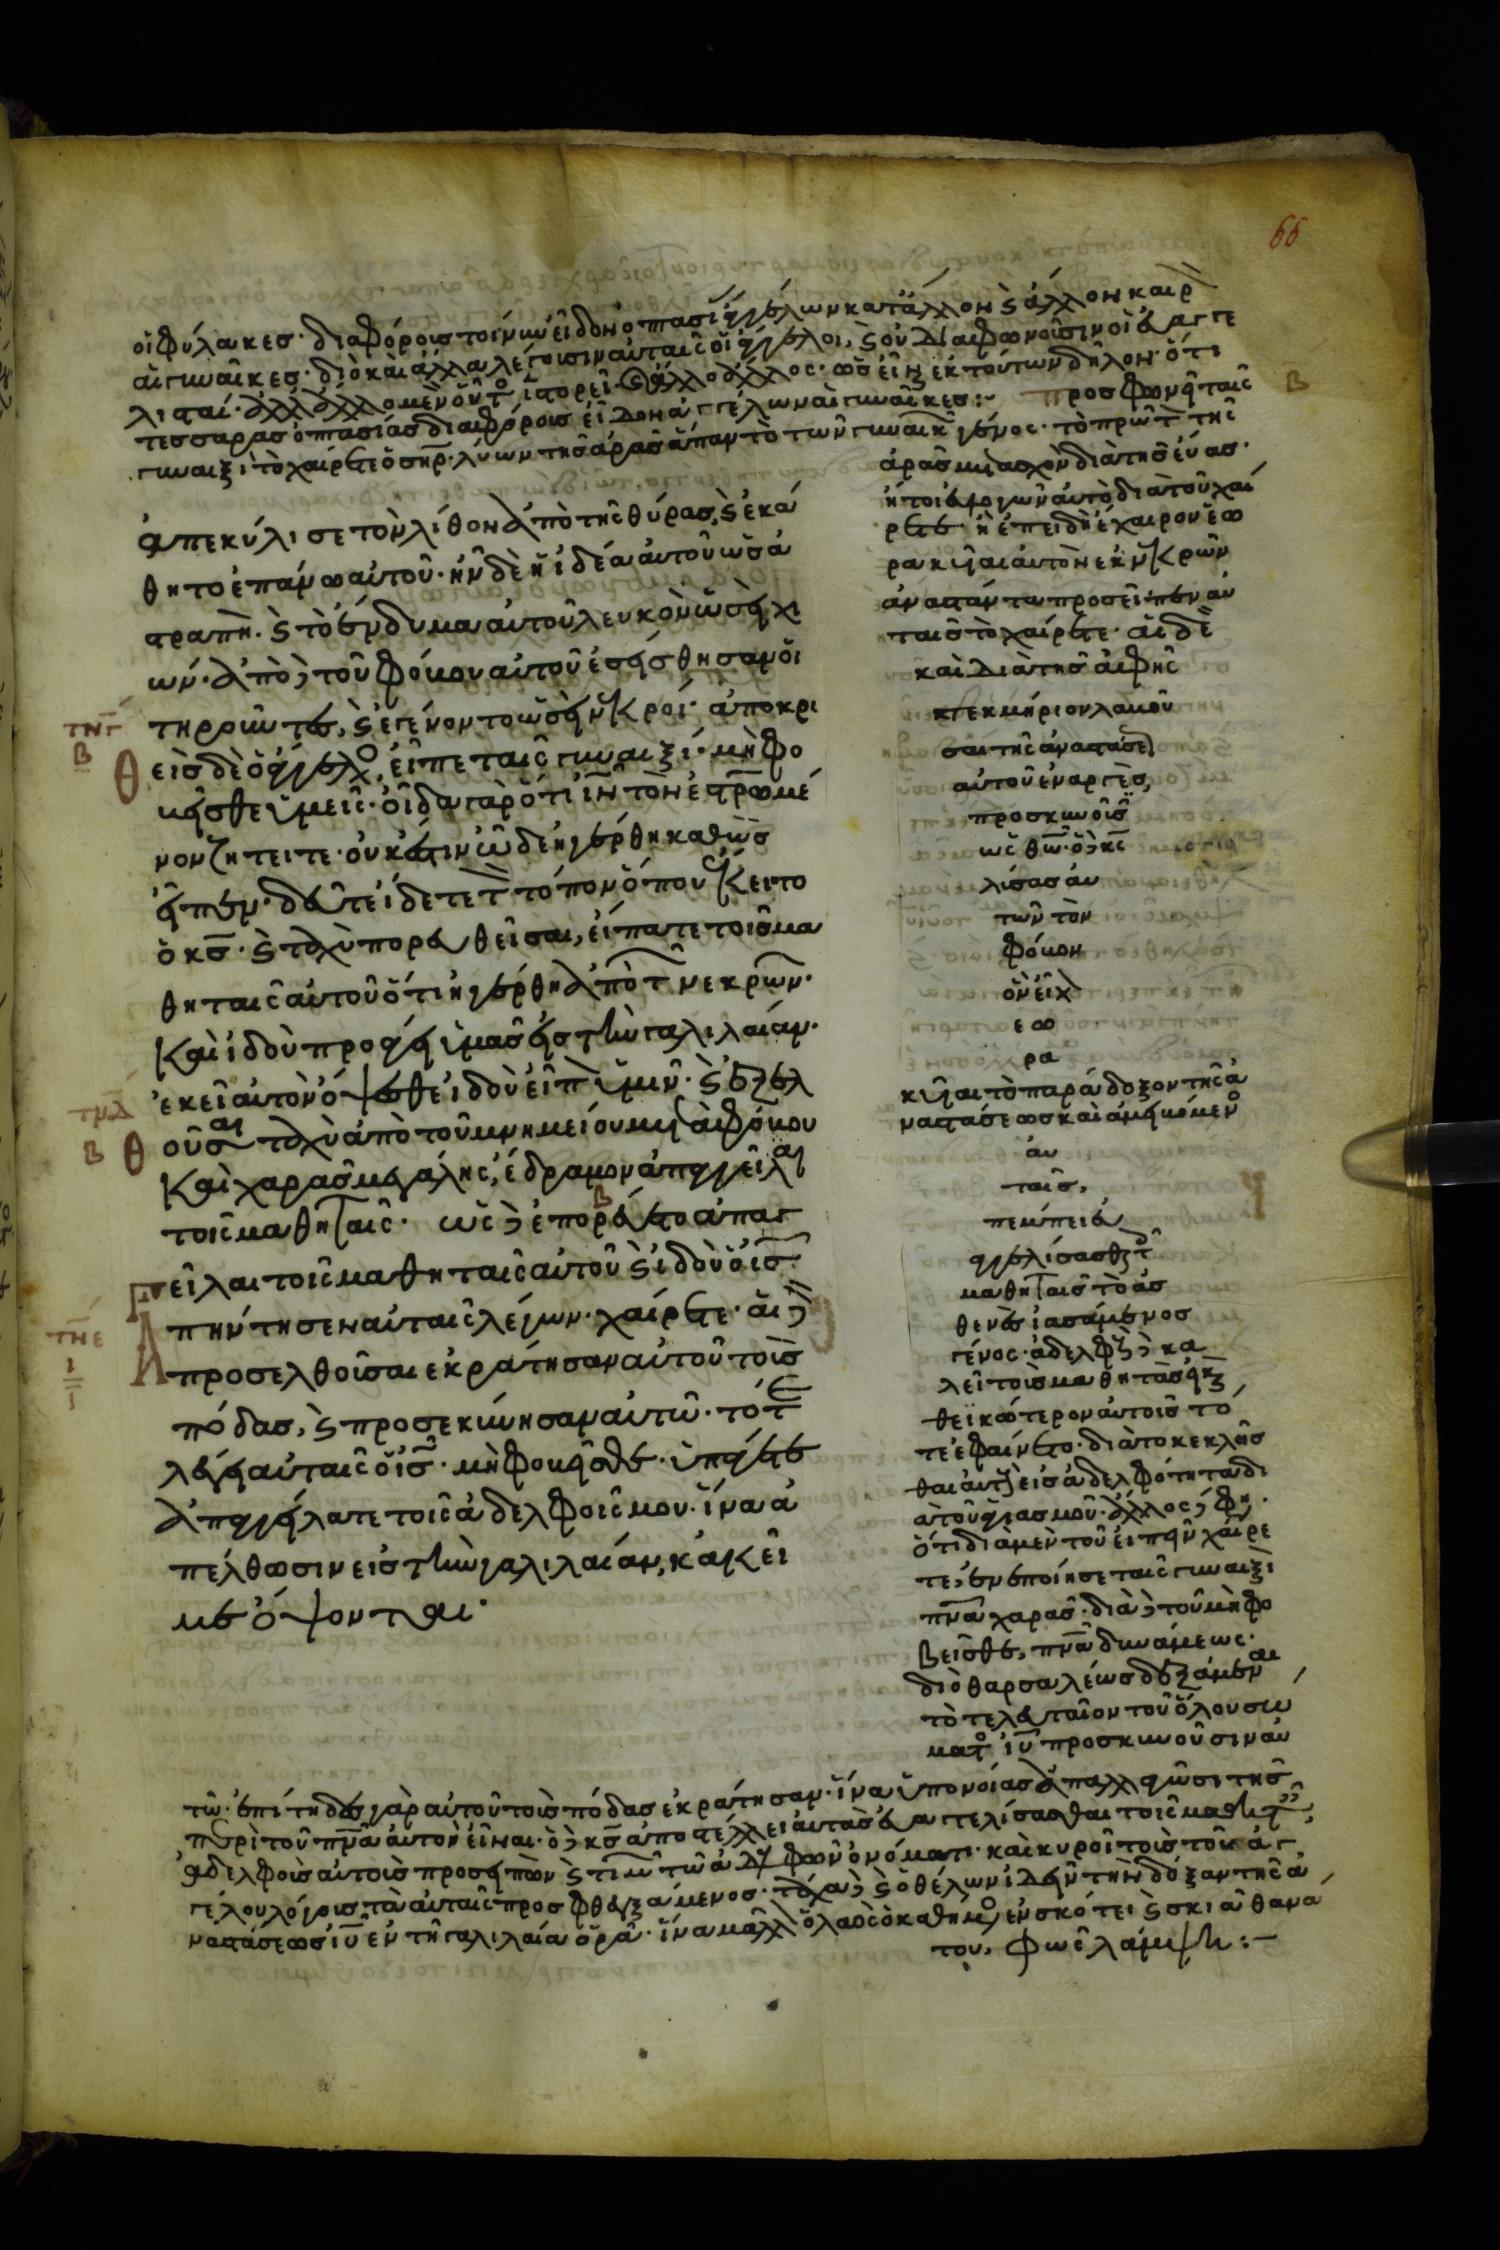 66
οἱ φύλακες· διαφόροις τοίνυν εἶδον ὀπτασίας ἀγγέλων κατ' ἄλλον καὶ ἄλλον καιρ
αἱ γυναῖκες· διὸ καὶ ἄλλα λέγουσιν αὐταῖς οἱ ἄγγελοι, καὶ οὐ διαφωνοῦσιν οἱ εὐαγγε
λισταί· ἀλλ' ἄλλο μὲν οὗτος ἱστορεῖ· ἄλλο δὲ ἄλλος· ὡς εἶναι ἐκ τούτων δῆλον· ὅτι
τέσσαρας ὀπτασίας διαφόροις εἶδον ἀγγέλων αἱ γυναῖκες:- προσφωνεῖ ταῖς
γυναιξὶ τὸ χαίρετε ὁ σηρ· λύων τῆς ἀρᾶς ἅπαν τὸ τῶν γυναικ γένος· τὸ πρῶτ τῆς
ἀρᾶς μετασχὸν διὰ τῆς εὔας·
ἀπεκύλισε τὸν λίθον ἀπὸ τῆς θύρας, καὶ ἐκά
θητο ἐπάνω αὐτοῦ· ἦν δὲ ἡ ἰδέα αὐτοῦ ὡς ἀ
στραπὴ· καὶ τὸ ἔνδυμα αὐτοῦ λευκὸν ὡσεὶ χι
ών· ἀπὸ δὲ τοῦ φόβου αὐτοῦ ἐσείσθησαν οἱ
τηροῦντες, καὶ ἐγένοντο ὡσεὶ νεκροί· ἀποκρι
θεὶς δὲ ὁ ἄγγελος, εἶπε ταῖς γυναιξί· μὴ φο
βεῖσθε ὑμεῖς· οἶδα γὰρ ὅτι ιν τὸν ἐστρωμέ
νον ζητεῖτε· οὐκ ἔστιν ὧδε ἠγέρθη καθὼς
εἶπεν· δεῦτε ἴδετε τ τόπον ὅπου ἔκειτο
ὁ κς· καὶ ταχὺ πορευθεῖσαι, εἴπατε τοῖς μα
θηταῖς αὐτοῦ ὅτι ἠγέρθη ἀπὸ τ νεκρῶν·
καὶ ἰδοὺ προάγει ὑμᾶς εἰς τὴν γαλιλαίαν·
ἐκεῖ αὐτὸν ὄψεσθε ἰδοὺ εἶπ ὑμῖν· καὶ ἐξελ
θοῦσαι ταχὺ ἀπὸ τοῦ μνημείου μετὰ φόβου
καὶ χαρᾶς μεγάλης, ἔδραμον ἀπαγγεῖλαι
τοῖς μαθηταῖς· ὡς δὲ ἐπορεύοντο ἀπαγ
γεῖλαι τοῖς μαθηταῖς αὐτοῦ καὶ ἰδοὺ ὁ ις
ἀπήντησεν αὐταῖς λέγων· χαίρετε· αἱ δὲ
προσελθοῦσαι ἐκράτησαν αὐτοῦ τοὺς
πόδας, καὶ προσεκύνησαν αὐτῶ· τότε
λέγει αὐταῖς ὁ ις· μὴ φοβεῖσθε· ὑπάγετε
ἀπαγγείλατε τοῖς ἀδελφοῖς μου· ἵνα ἀ
πέλθωσιν εἰς τὴν γαλιλαίαν, κἀκεῖ
με ὄψονται·
ἤτοι διὰ τοῦ χαί
ρετε· ἢ ἐπειδὴ ἔχαιρον ἑω
ρακυῖαι αὐτὸν ἐκ νεκρῶν
ἀναστάντα προσεῖπεν αὐ
ταῖς τὸ χαίρετε· αἱ δὲ
καὶ διὰ τῆς ἁφῆς
τεκμήριον λαβοῦ
σαι τῆς ἀναστάσε
αὐτοῦ ἐναργὲς,
προσκυνοῦσ
ὡς θω· ὁ δὲ κς
λύσας αὐ
τῶν τὸν
φόβον
ὃν εἶχ
εω
ρα
κυῖαι τὸ παράδοξον τῆς ἀ
ναστάσεως καὶ ἀμειβόμεν
αὐ
τάς,
πέμπει εὐ
αγγελίσασθαι τ
μαθηταῖς τὸ ἀσ
θενὲς ἰασάμενος
γένος· ἀδελφ δὲ κα
λεῖ τοὺς μαθητὰς ἐπεὶ
θεϊκώτερον αὐτοῖς το
τε ἐφαίνετο· διὰ τὸ κεκλῆσ
θαι αὐτ εἰς ἀδελφότητα δι
ὰ τοῦ ἁγιασμοῦ· ἄλλος δέ φη·
ὅτι διὰ μὲν τοῦ εἰπεῖν χαίρε
τε, ἐνεποίησε ταῖς γυναιξὶ
πνα χαρᾶς· διὰ δὲ τοῦ μὴ φο
βεῖσθε, πνα δυνάμεως·
διὸ θαρσαλέως δεξάμεναι
τὸ τελευταῖον τοῦ ὅλου σω
ματος ιυ προσκυνοῦσιν αὐ
τῶ· ἐπίτηδες γὰρ αὐτοῦ τοὺς πόδας ἐκράτησαν· ἵνα ὑπονοίας ἀπαλλαγῶσι τῆς
περὶ τοῦ πνα αὐτὸν εἶναι· ὁ δὲ κς ἀποστέλλει αὐτὰς εὐαγγελίσασθαι τοῖς μαθητ
ἀδελφοὺς αὐτοὺς προσειπὼν καὶ τιμ τῶ ἀδελφῶν ὀνόματι· καὶ κυροῖ τοὺς τοῦ ἀγ
γέλου λόγους τὰ αὐταῖς προσφθεγξάμενος· τάχα δὲ καὶ ὁ θέλων ἰδεῖν τὴν δόξαν τῆς ἀ
ναστάσεως ιυ ἐν τῇ γαλιλαία ὅρα· ἵνα μᾶλλ ὁ λαὸς ὁ καθήμ ἐν σκότει καὶ σκιᾶ θανά
του, φῶς λάμψη:-